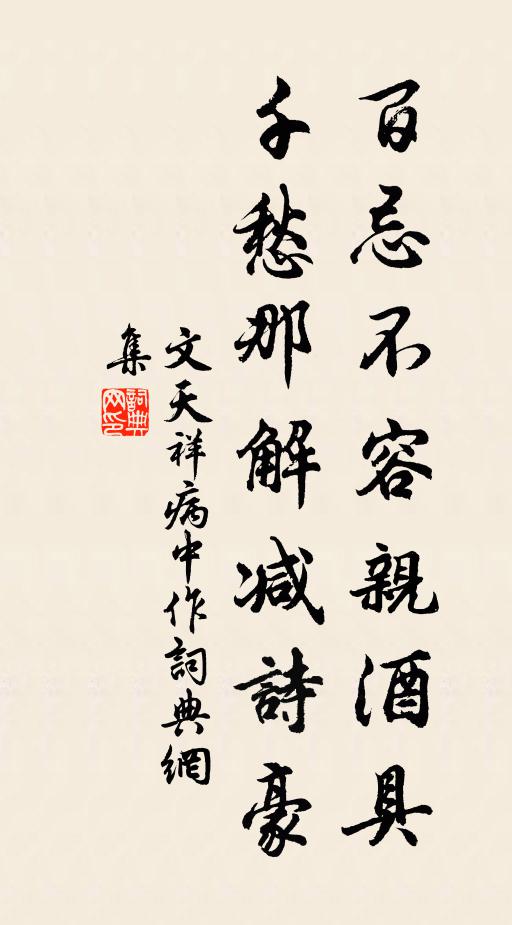 百忌不容親酒具
千愁那解减詩豪
文天祥病中作詞典網
集
詞典
网印